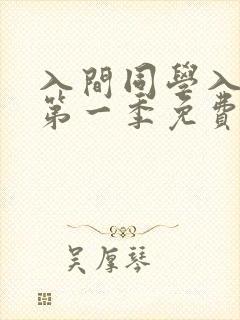 入間同學入
第一季免費
吴厚琴